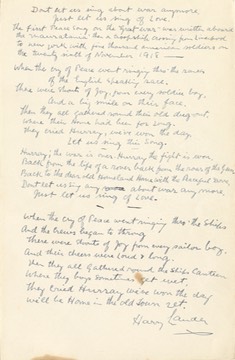 Dont let us sing about war anymore
Just let us sing of Love.
The First Peace song on the Great War was written aboard
the Mauretania this a troopship coming from Liverpool
to new york with five thousand american soldiers on
the twenty ninth of November 1918 —
When the cry of Peace went ringing thro the
of the English Reading
There were shouts of Joy from every soldier boy.
And a big smile on their face.
Then they all gathered round that old dug out.
Where their home had been for long.
They cried Hurray, we've won the day
Let us sing this Song.
Hurray; the war is over Hurray the fight is won.
Back from the life of a rover back from the roar of the gun
Back to the dear old Homeland Home with the Peaceful
Dont let us sing any about war any more,
Just let us sing of Love.
When the cry of Peace went ringing thro the Ships
And the Crews began to throng
There were shouts of Joy from every sailor boy.
And their cheers were loud & long.
Then they all Gathered round the Ships Canteen.
Where they boys sometimes get wet.
They cried Hurray we've won the day
we'll be Home in the old Town yet.
Harry Lauder